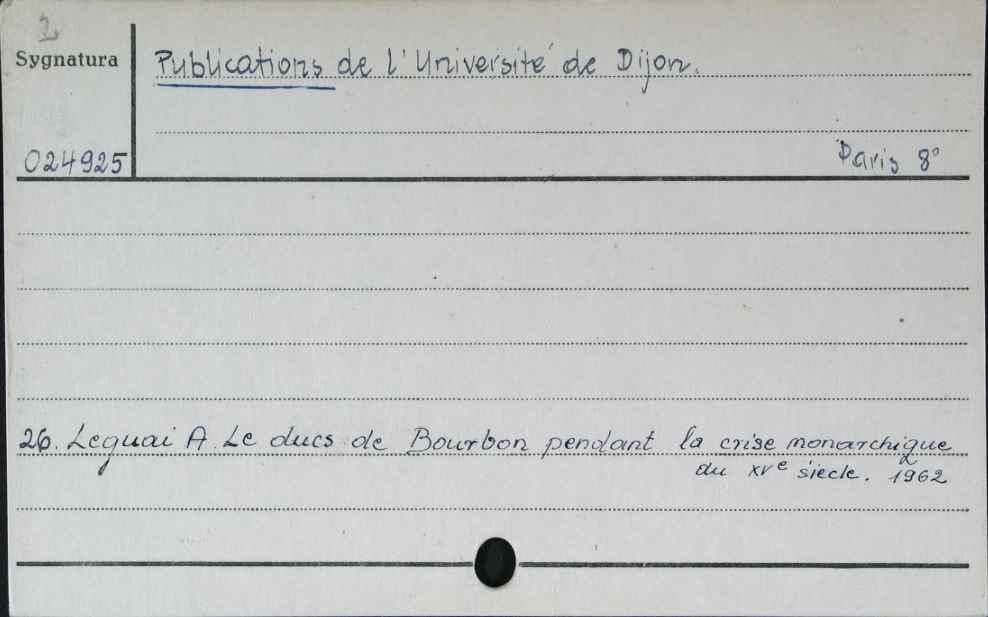 2
Sygnatura
Publications de l'Université de Dijon.
024925
Paris 8°
26. Leguai A. Le ducs de Bourbon pendant la crise monarchique
du XVe siecle. 1962